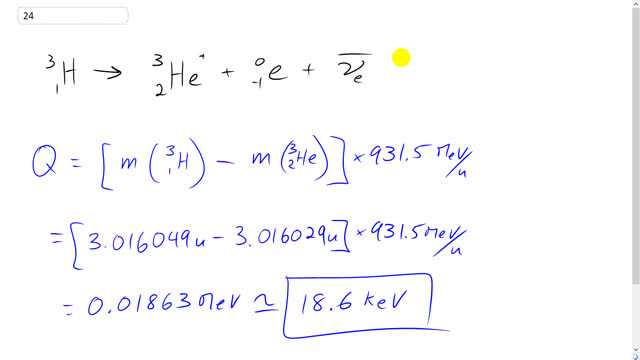 24
³₁H → ³₂He⁺ + ⁰₋₁e + ν̅ₑ
Q = [m(³₁H) − m(³₂He)] × 931.5 MeV/u
= [3.016049u − 3.016029u] × 931.5 MeV/u
= 0.01863 MeV ≃ 18.6 keV